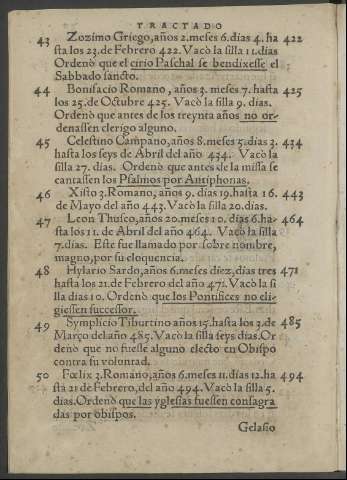 TRACTADO
43 Zozimo Griego, años 2. meses 6. dias 4. ha 422
sta los 23. de Febrero 422. Vacò la silla 11. dias
Ordenò que el cirio Paschal se bendixesse el
Sabbado sancto.
44 Bonifacio Romano, años 3. meses 7. hasta 425
los 25. de Octubre 425. Vacò la silla 9. dias.
Ordenò que antes de los treynta años no or-
denassen clerigo alguno.
45 Celestino Campano, años 8. meses 5. dias 3. 434
hasta los seys de Abril del año 434. Vacò la
silla 27. dias. Ordenò que antes de la missa se
cantassen los Psalmos por Antiphonas.
46 Xisto 3. Romano, años 9. dias 19. hasta 16. 443
de Mayo del año 443. Vacò la silla 20. dias.
47 Leon Thusco, años 20. meses 10. dias 6. ha- 464
sta los 11. de Abril del año 464. Vacò la silla
7. dias. Este fue llamado por sobre nombre,
magno, por su eloquencia.
48 Hylario Sardo, años 6. meses diez, dias tres 471
hasta los 21. de Febrero del año 471. Vacò la si
lla dias 10. Ordenò que los Pontifices no eli-
giessen successor.
49 Symplicio Tiburtino años 15. hasta los 2. de 485
Março del año 485. Vacò la silla seys dias. Or
denò que no fuesse alguno electo en Obispo
contra su voluntad.
50 Fœlix 3. Romano, años 6. meses 11. dias 12. ha 494
sta 21 de Febrero, del año 494. Vacò la silla 5.
dias. Ordenò que las yglesias fuessen consagra
das por obispos.
Gelasio